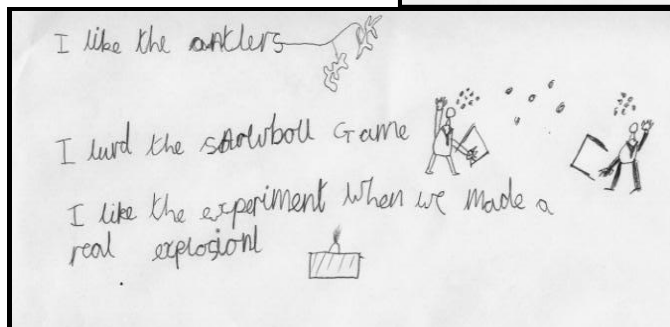 I like the antlers
I luvd the snowboll Game
I like the experiment when we made a
real explosion!